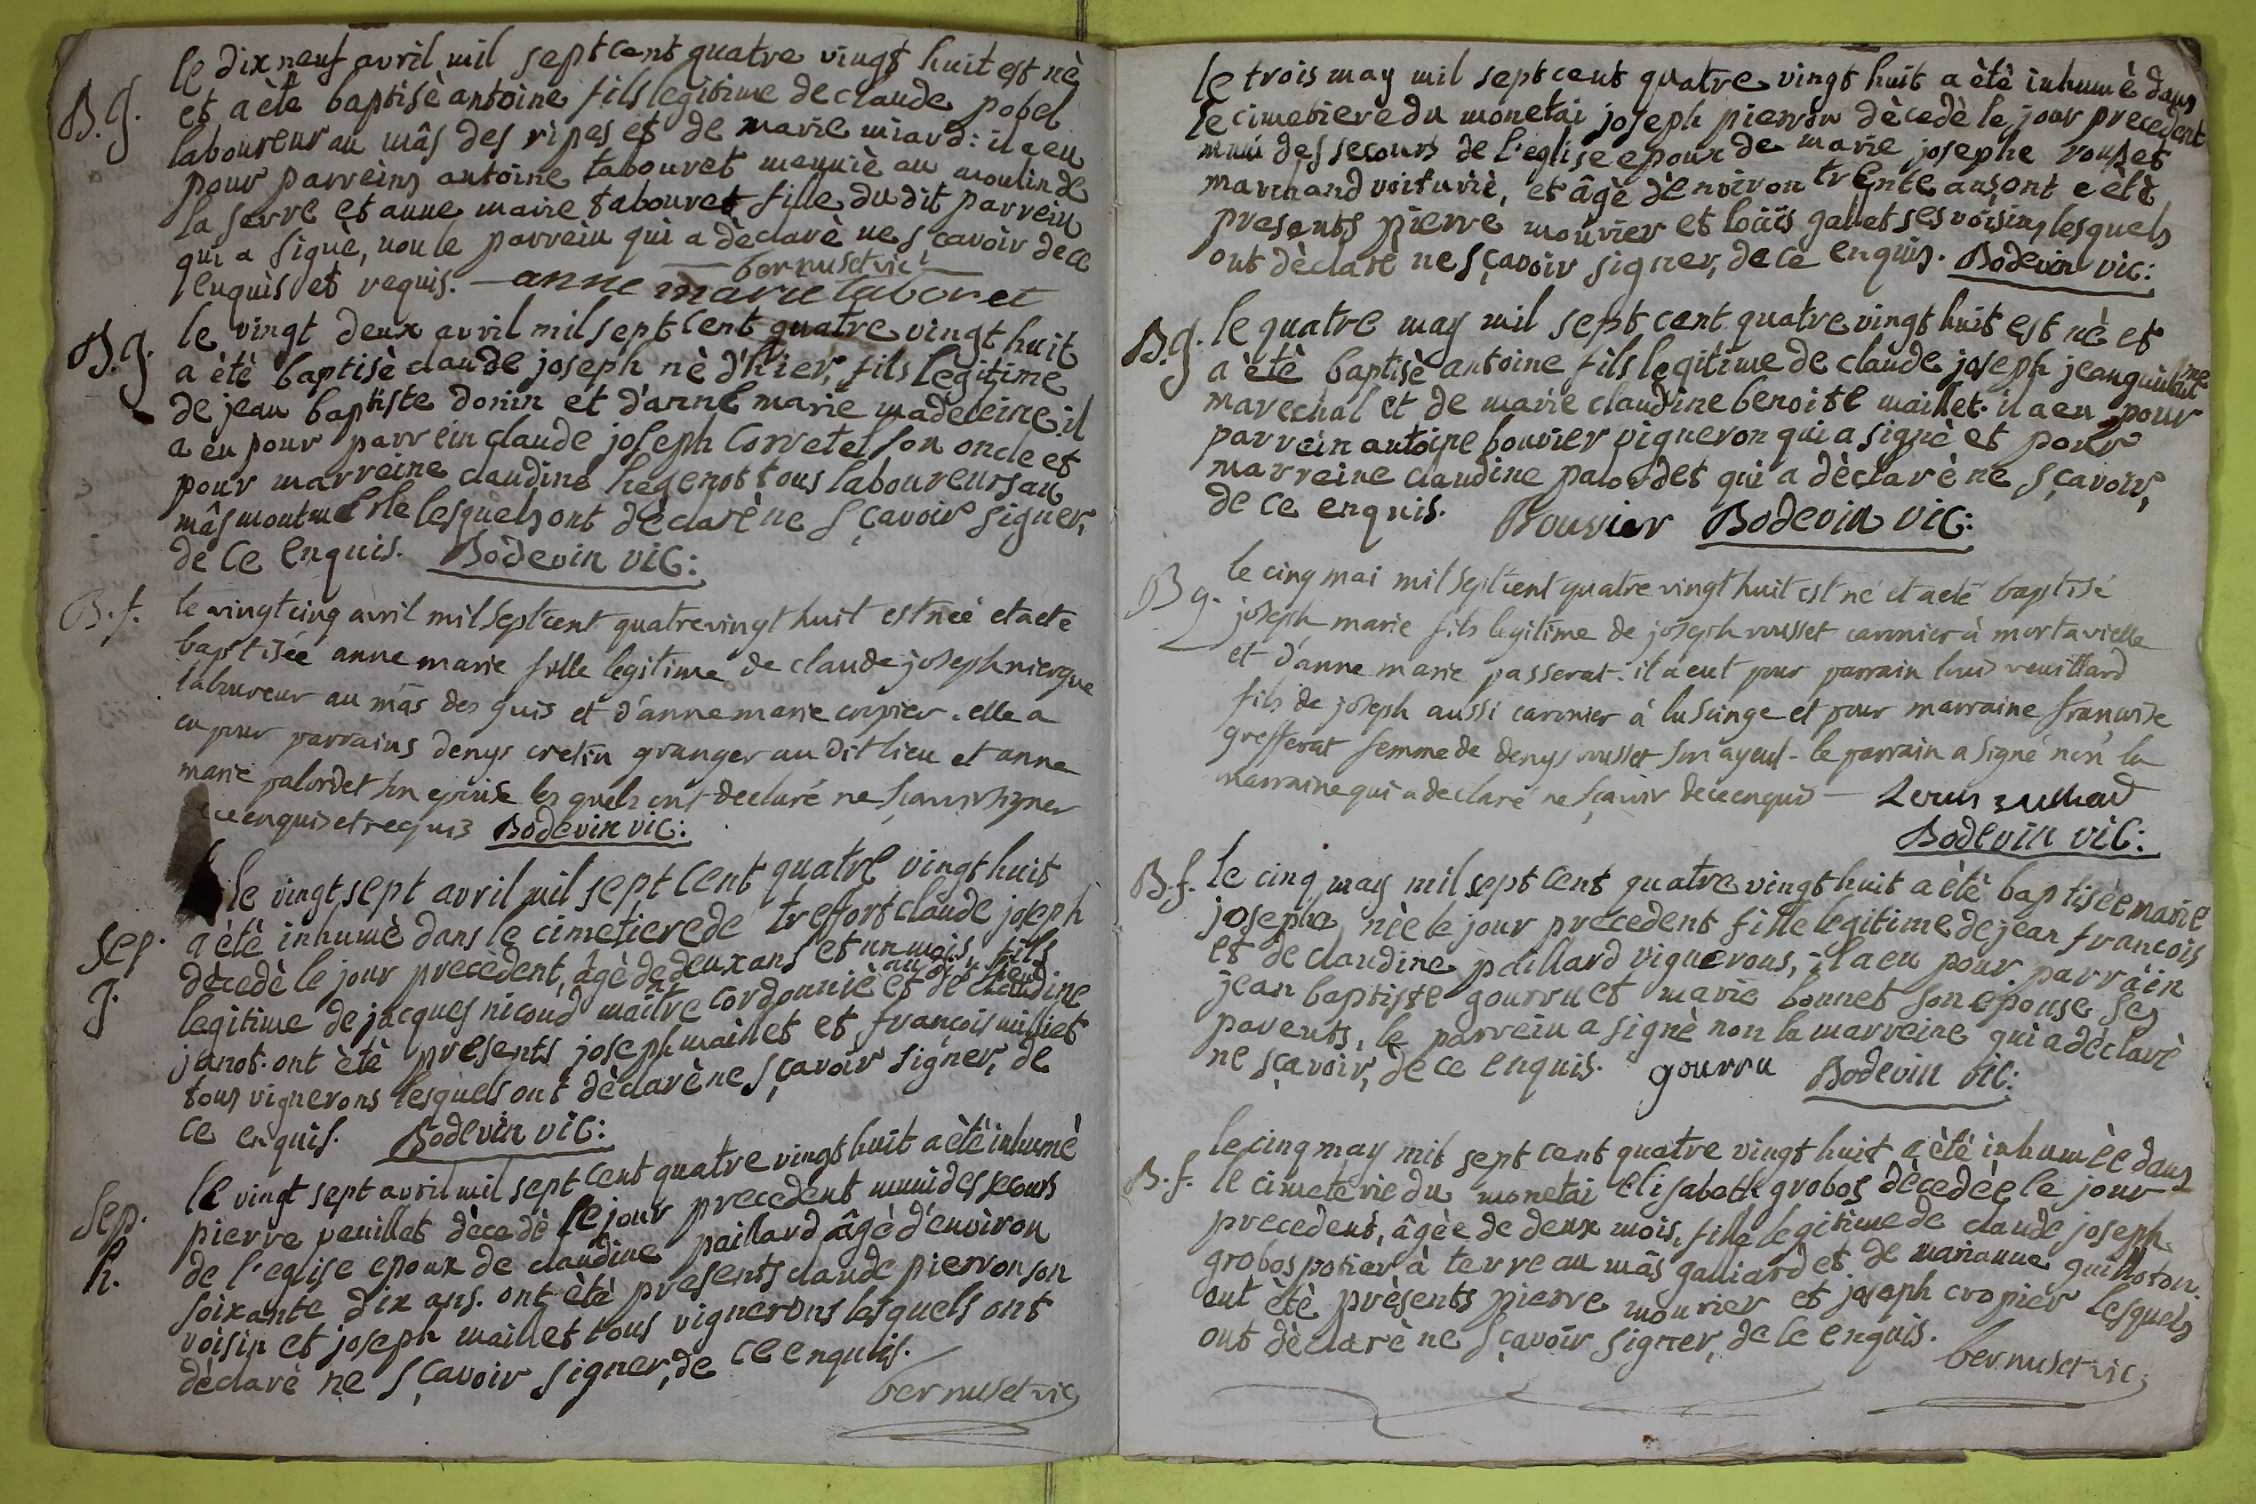 le dix neuf avril mil sept cent quatre vingt huit est nè
B. g. et a ètè baptisè antoine fils legitime de claude pobel
laboureur au mâs des ripes et de marie miard: il a eu
pour parreins antoine tabouret meuniè au moulin de
la serre et anne marie tabouret fille du dit parrein
qui a signè, non le parrein qui a dèclarè ne sçavoir de ce
enquis et requis. bernuset vic:
anne marie taboret
B. g. le vingt deux avril mil sept cent quatre vingt huit
a ètè baptisè claude joseph nè d'hier, fils legitime
de jean baptiste donin et d'anne marie madeleine: il
a eu pour parrein claude joseph corretel son oncle et
pour marreine claudine hegenot tous laboureurs au
mâs montmerle lesquels ont dèclarè ne sçavoir signer,
de ce enquis. Bodevin vic:
B. f. le vingt cinq avril mil sept cent quatre vingt huit est neé et a eté
baptisée anne marie fille legitime de claude joseph niergue
laboureur au mâs des guis et d'anne marie cropier. elle a
eu pour parrains denys cretin granger au dit lieu et anne
marie palordet son epouse lesquels ont declaré ne sçavoir signer
de ce enquis et requis Bodevin vic:
le vingt sept avril mil sept cent quatre vingt huit
sep. a ètè inhumè dans le cimetiere de treffort claude joseph
g. dècedè le jour precèdent, âgè de deux ans et un mois, fils
legitime de jacques nicoud maître cordonniè au dit lieu et de claudine
janot. ont ètè presents joseph maillet et françois milliet
tous vignerons lesquels ont dèclarè ne sçavoir signer, de
ce enquis. Bodevin vic:
le vingt sept avril mil sept cent quatre vingt huit a ètè inhumè
Sep. pierre peuillet dècedè le jour precedent muni des secours
h. de l'eglise epoux de claudine paillard âgè d'environ
soixante dix ans. ont ètè presents claude pierron son
voisin et joseph maillet tous vignerons lesquels ont
dèclarè ne sçavoir signer, de ce enquis.
bernuset vic
le trois may mil sept cent quatre vingt huit a ètè inhumè dans
le cimetiere du monetai joseph pierron dècedè le jour precedent
muni des secours de l'eglise epoux de marie josephe rousset
marchand voituriè, et âgè d'environ trente ans, ont etè
presents pierre mourier et loüis gallet ses voisins lesquels
ont dèclarè ne sçavoir signer, de ce enquis. Bodevin vic:
B. g. le quatre may mil sept cent quatre vingt huit est nè et
a ètè baptisè antoine fils legitime de claude joseph jeanguillaume
marechal et de marie claudine benoite maillet. il a eu pour
parrein antoine bouvier vigneron qui a signè et pour
marreine claudine palordet qui a dèclarè ne sçavoir,
de ce enquis. Bouvier Bodevin vic:
B g. le cinq mai mil sept cent quatre vingt huit est né et a eté baptisé
joseph marie fils legitime de joseph rousset caronier à mortavielle
et d'anne marie passerat. il a eut pour parrain louis reuillard
fils de joseph aussi caronier à lusinge et pour marraine françoise
grefferat femme de denys rousset son ayeul - le parrain a signé non la
marraine qui a declaré ne sçavoir de ce enquis — Louis
Bodevin vic:
B. f. le cinq may mil sept cent quatre vingt huit a ètè baptisèe marie
josephe nèe le jour precedent fille legitime de jean francois
et de claudine paillard vignerons, il a eu pour parrain
jean baptiste gourru et marie bonnet son epouse ses
parents, le parrein a signè non la marreine qui a dèclarè
ne sçavoir, de ce enquis. gourru Bodevin vic:
le cinq may mil sept cent quatre vingt huit a ètè inhumèe dans
B. f. le cimeterie du monetai elisabeth grobos dècedèe le jour
precedent, âgèe de deux mois, fille legitime de claude joseph
grobos potier à terre au mâs galliard et de marianne guilloton.
ont ètè prèsents pierre mourier et joseph cropier lesquels
ont dèclarè ne sçavoir signer, de ce enquis.
bernuset vic: